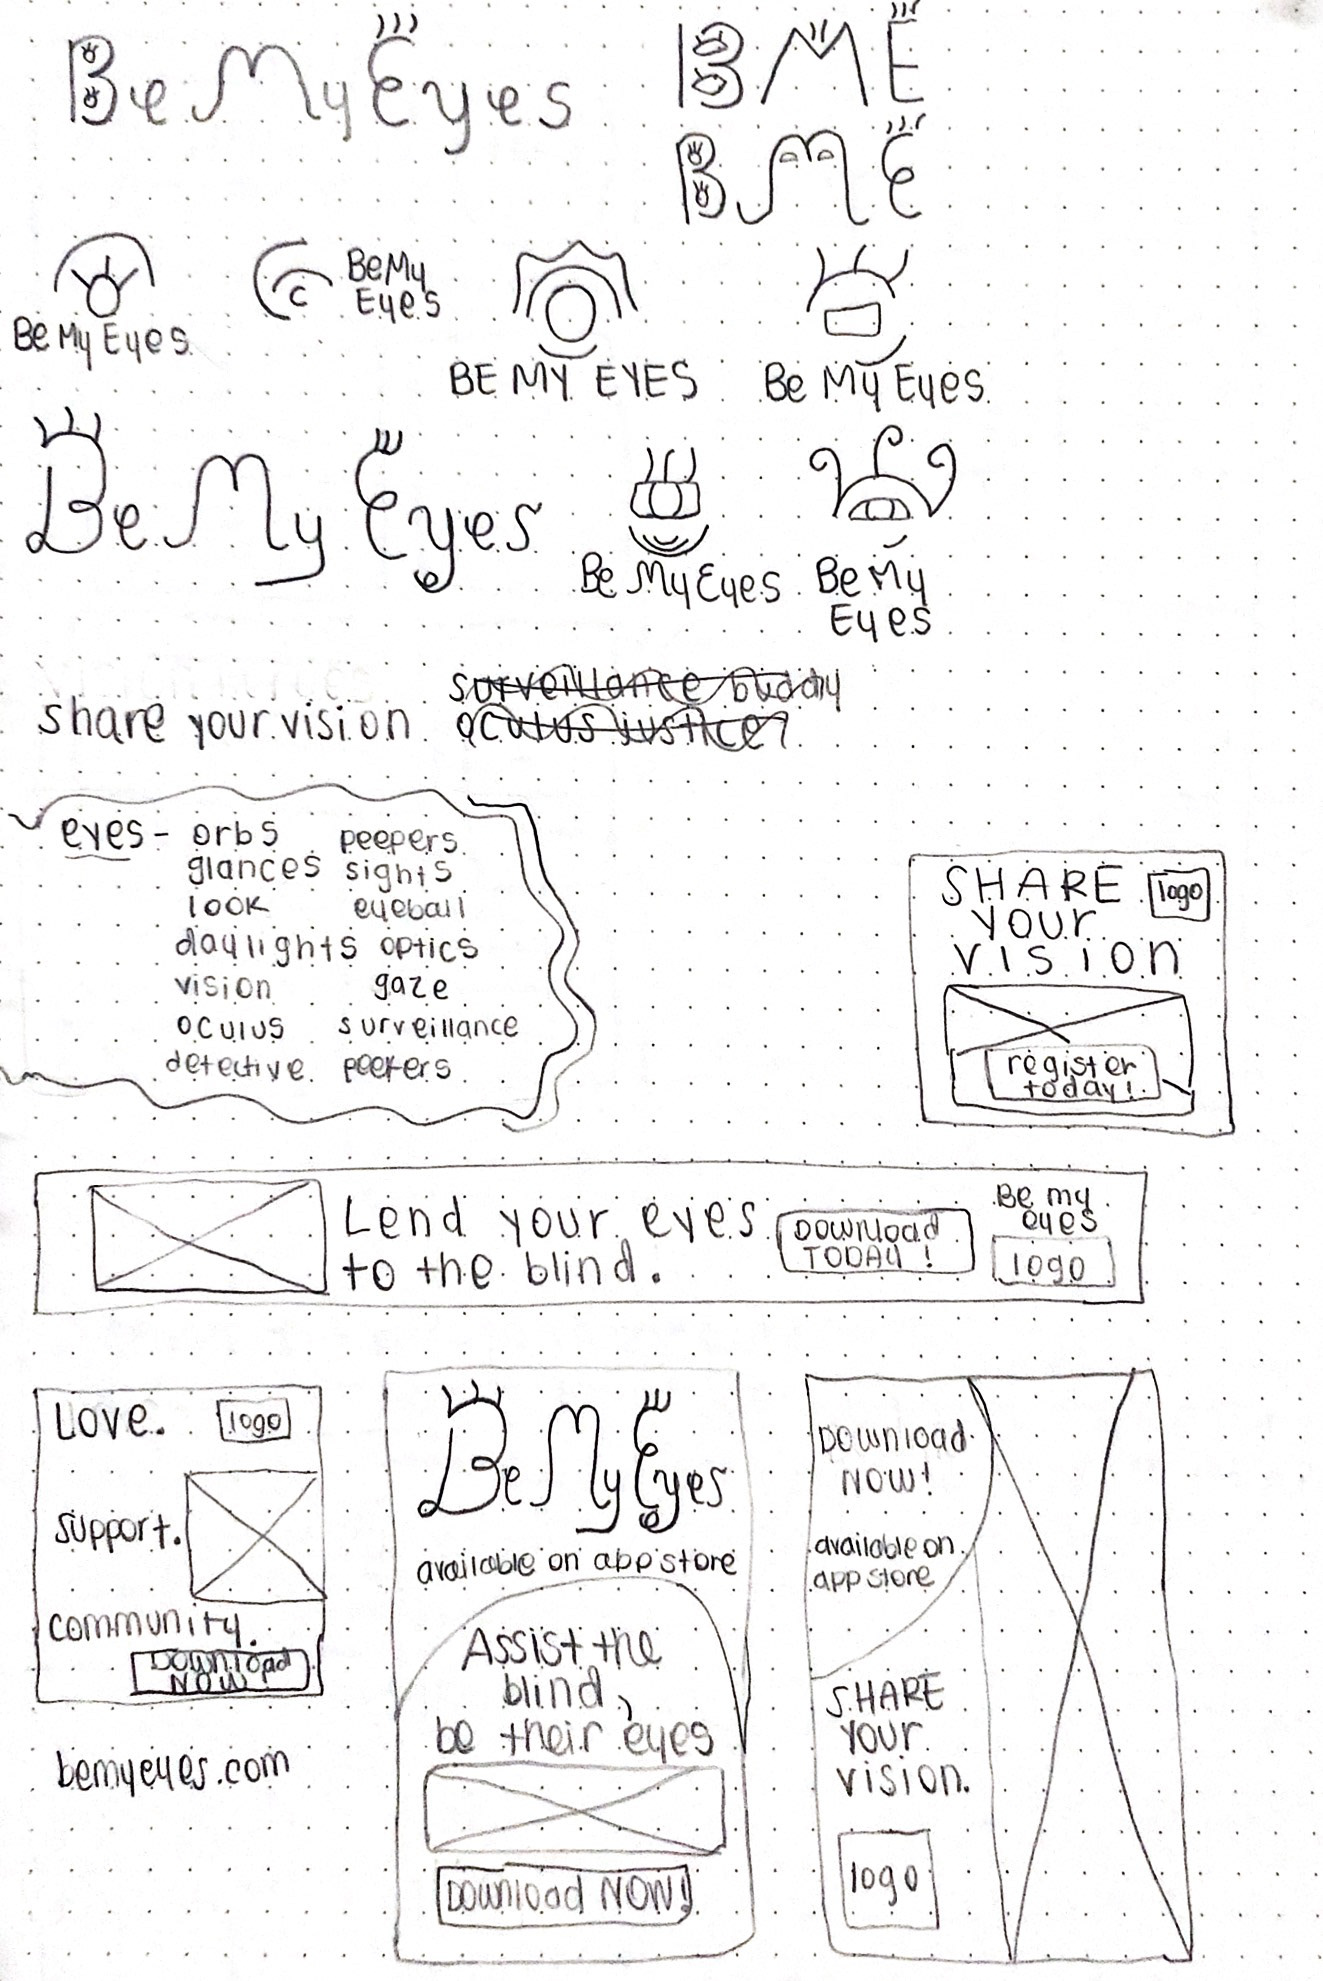 Be My Eyes
BME
BME
Be My Eyes
Be My
Eyes
BE MY EYES
Be My Eyes
Be My Eyes
Be My Eyes
Be My
Eyes
surveillance buddy
share your vision
oculus justice?
eyes - orbs peepers
glances sights
look eyeball
daylights optics
vision gaze
oculus surveillance
detective peekers
SHARE logo
your
vision
register
today!
Lend your eyes
to the blind.
DOWNload
TODAY!
Be my
eyes
logo
Love. logo
support.
community.
DOWNload
NOW
bemyeyes.com
Be My Eyes
available on app store
Assist the
blind,
be their eyes
DOWNload NOW!
DOWNload
NOW!
available on
app store
SHARE
your
vision.
logo